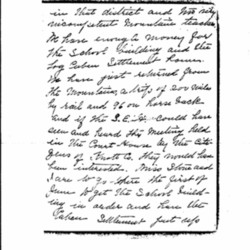 in that district and not only
incompetent Mountain teacher
We have enough money for
the School building and the
Log Cabin Settlement Home.
We have just returned from
the Mountains a trip of 200 miles
by rail and 96 on horse back.
and if the S.E.A. could have
seen and heard this Meeting held
in the Court House by the Citi-
zens of Knott Co. they would have
been interested. Miss Stone and
I are to go there the first of
June to get the School build-
ing in order and have the
Cabin Settlement just